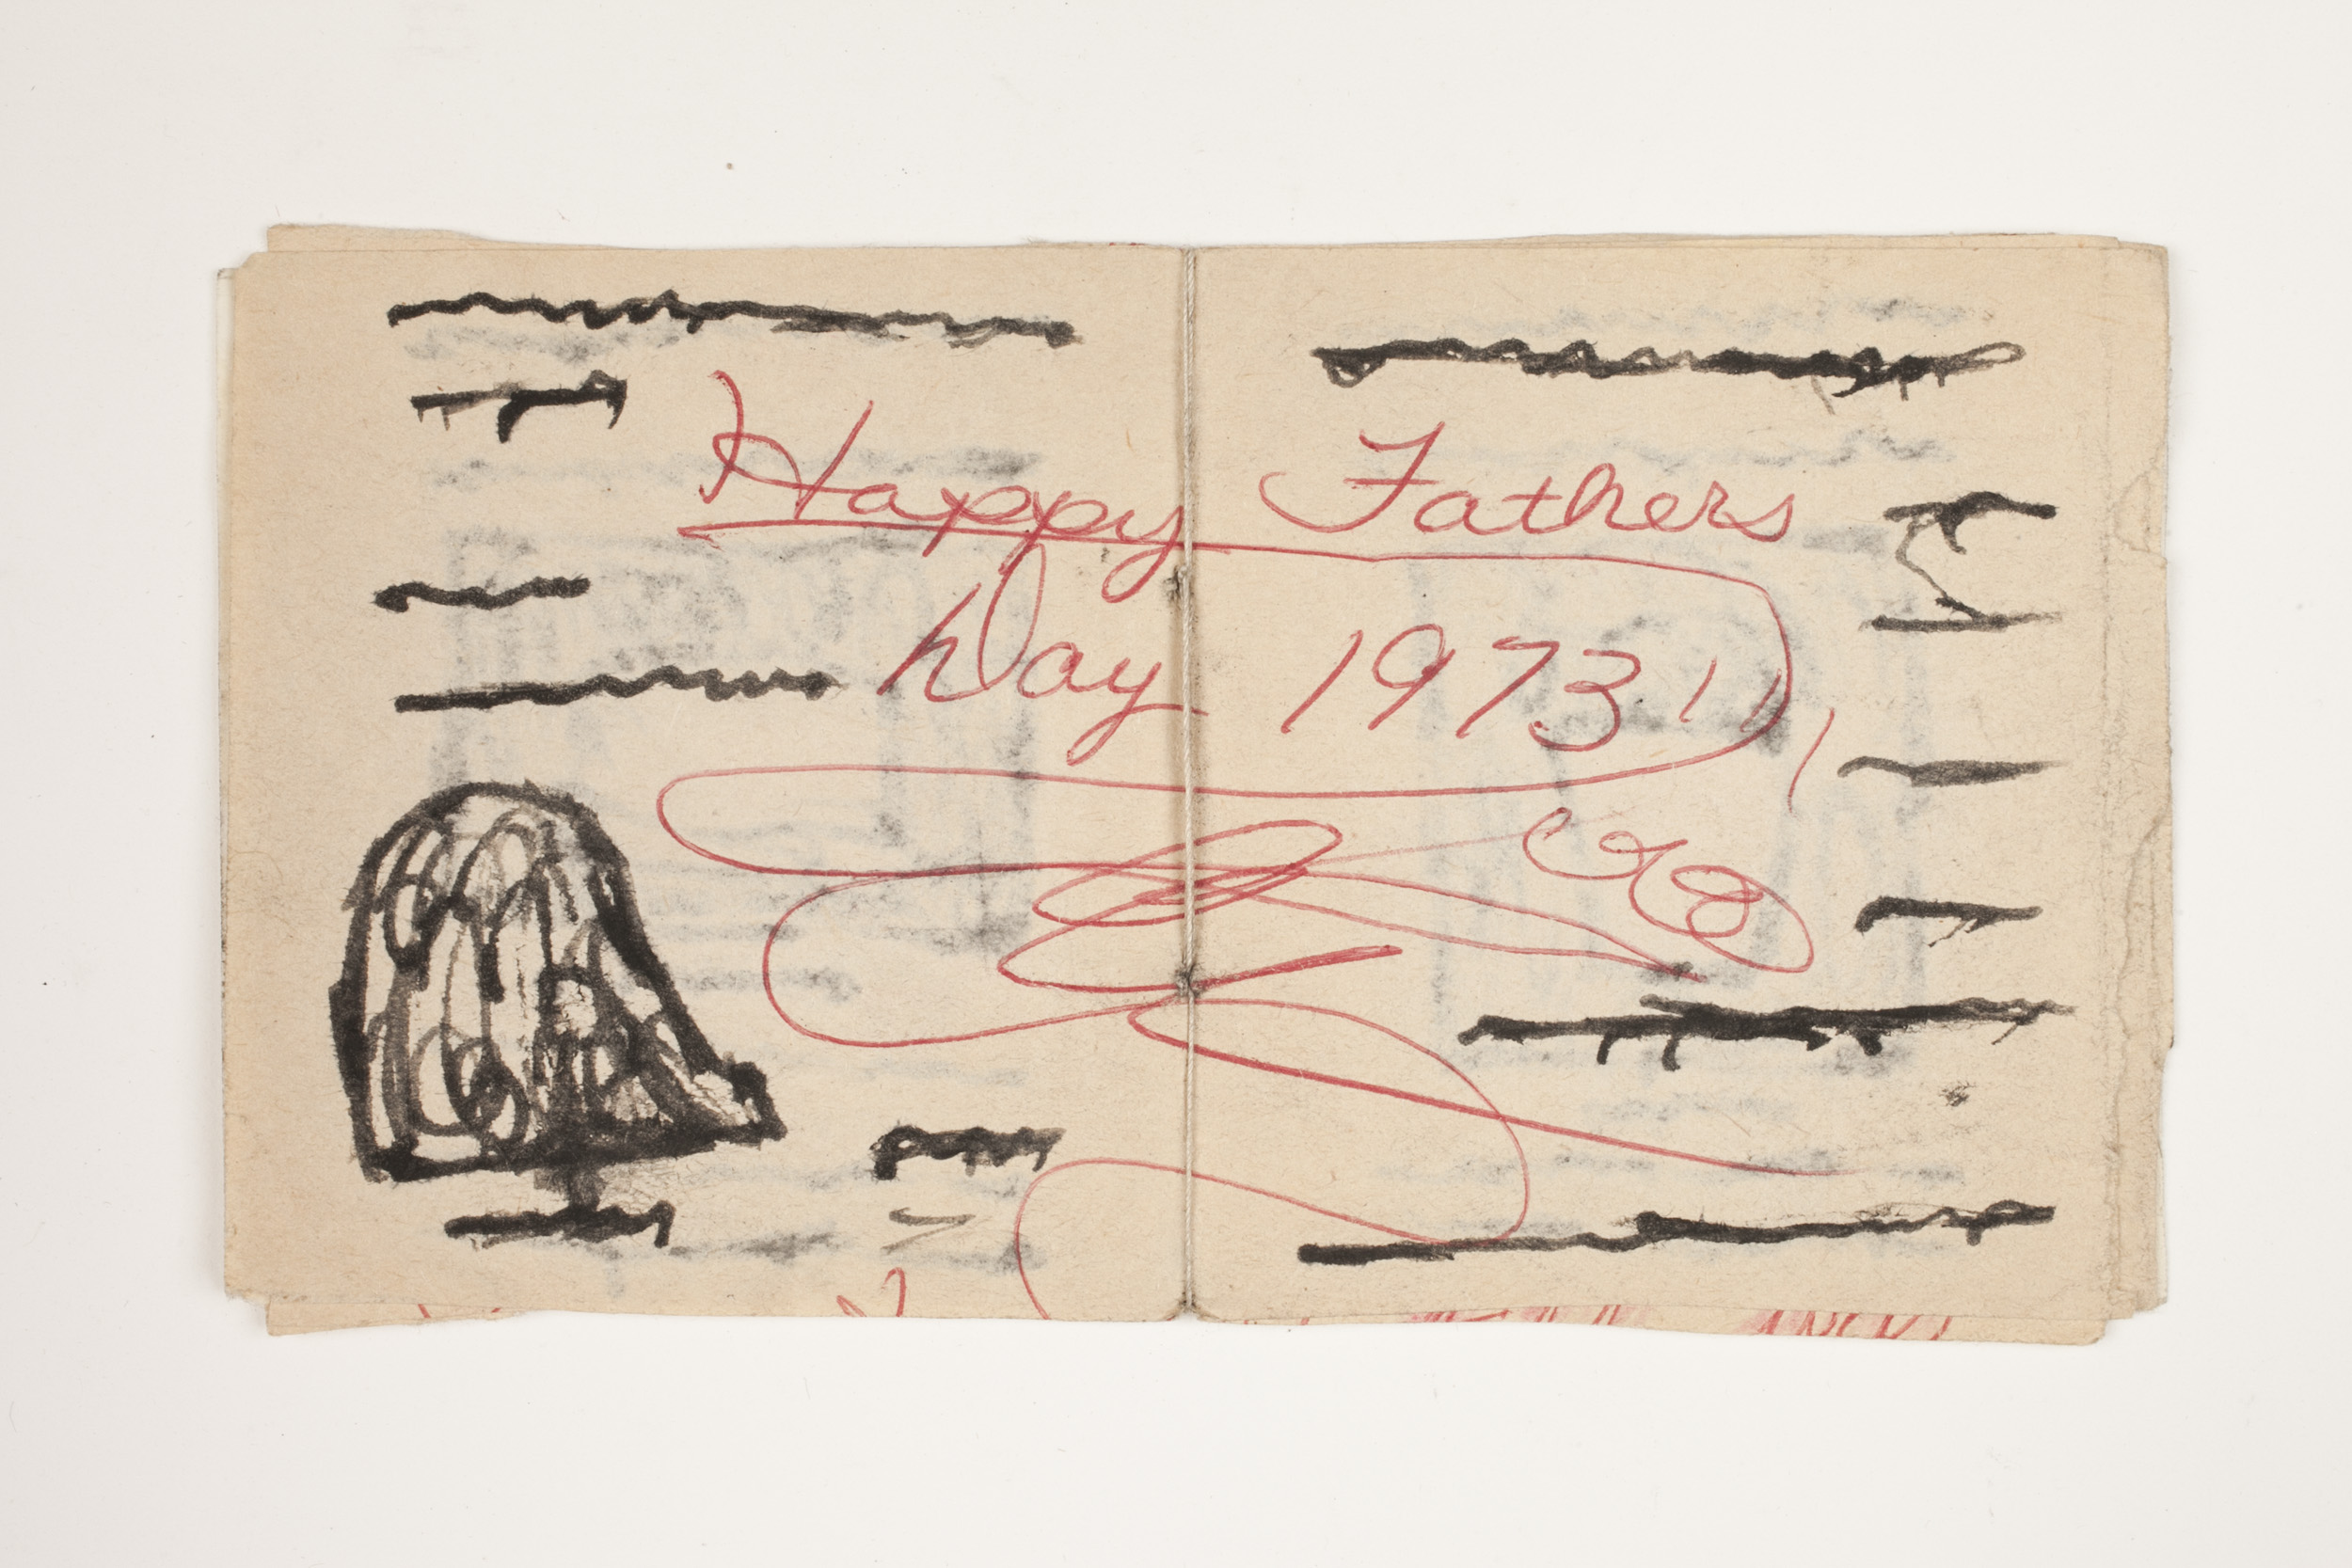 Happy Fathers
Day 1973!!!